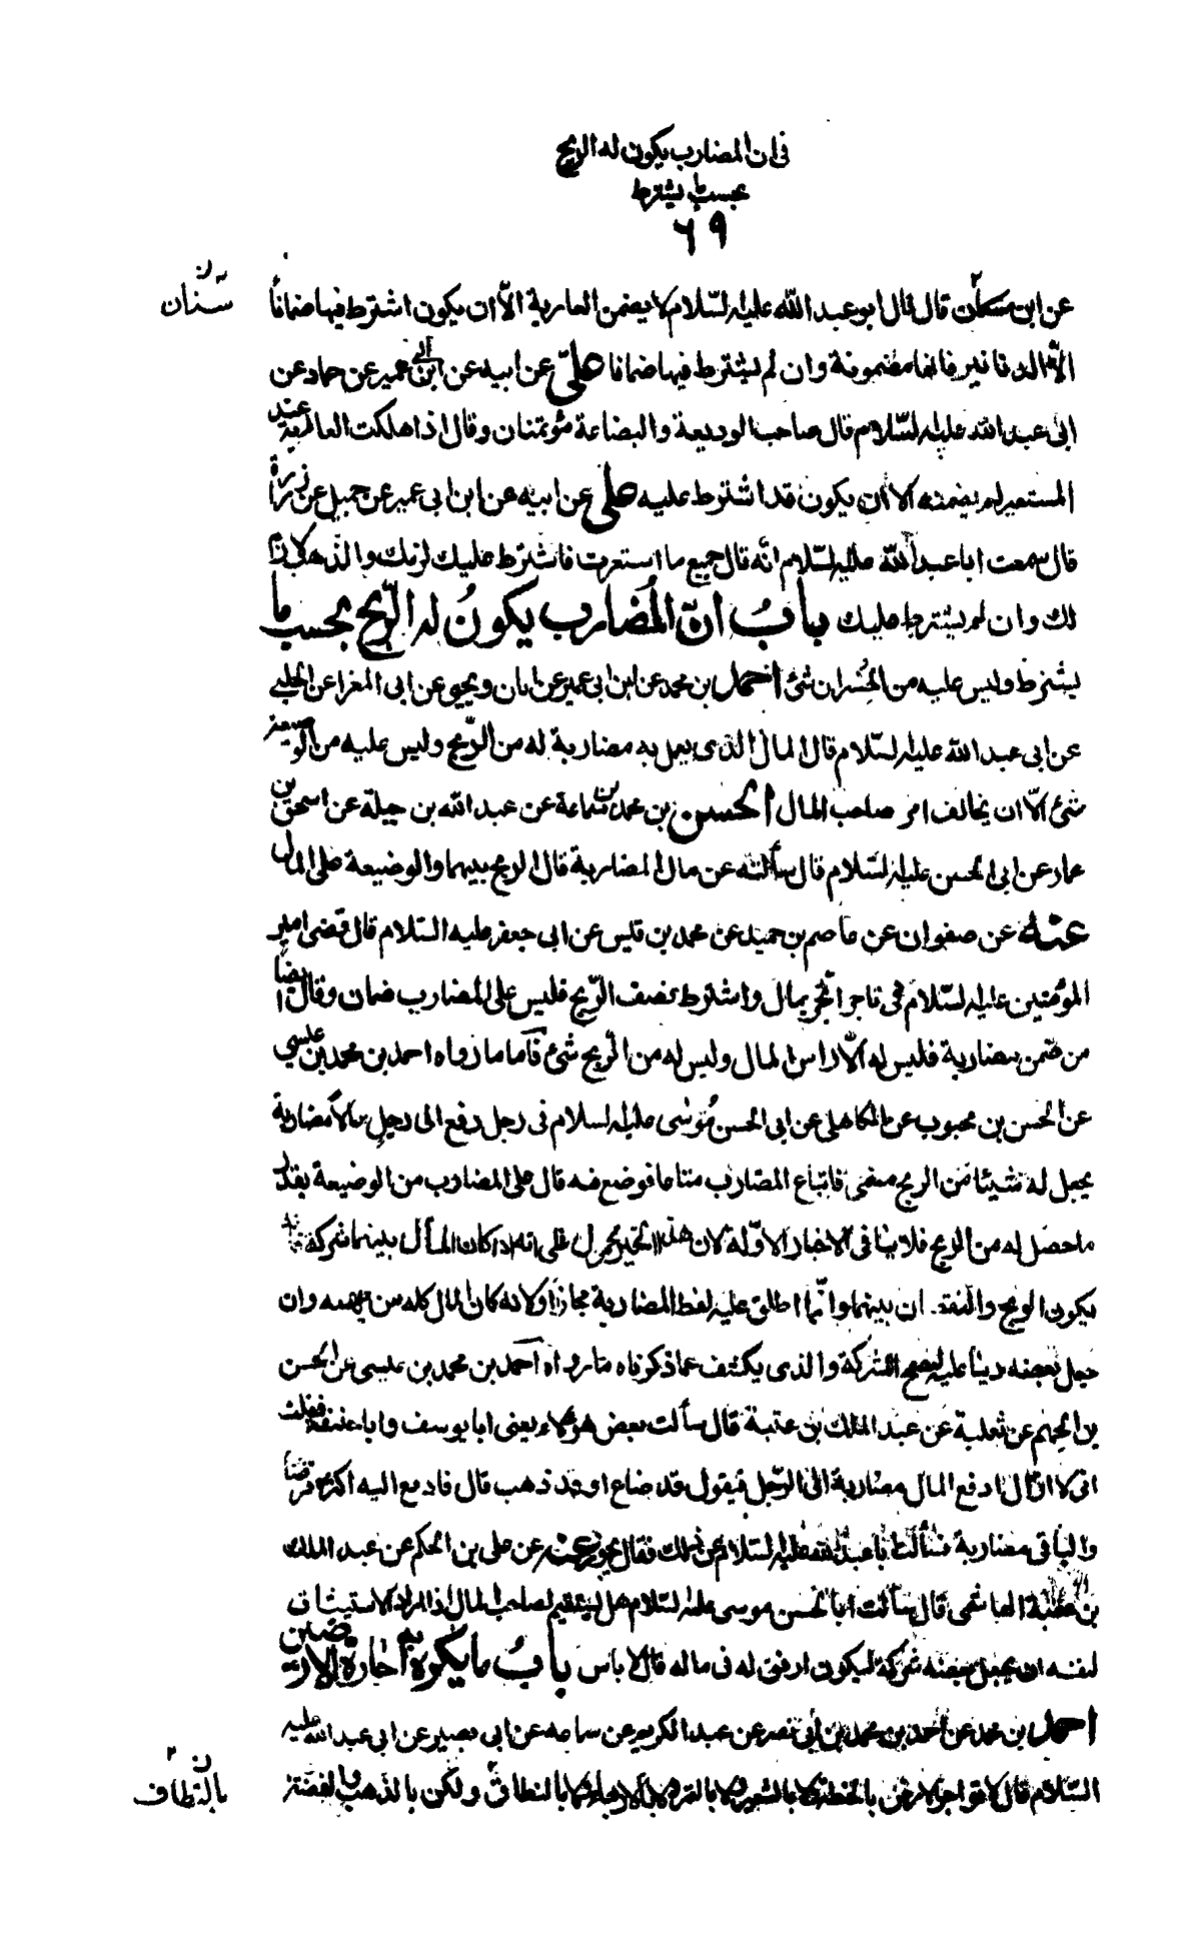 فى ان المضارب يكون له الربح
بحسب ما يشترط
٦٩
ن
سنان
عن ابن مسكان قال قال ابو عبد الله عليه السّلام لا يضمن العارية الّا ان يكون اشترط فيها ضمانا
الّا الدنانير فانها مضمونة وان لم يشترط فيها ضمانا علىّ عن ابيه عن ابن ابى عمير عن حماد عن
ابى عبد الله عليه السّلام قال صاحب الوديعة والبضاعة مؤتمنان وقال اذا هلكت العارية عند
المستعير لم يضمنه الا ان يكون قد اشترط عليه على عن ابيه عن ابن ابى عمير عن جميل عن زرارة
قال سمعت ابا عبد الله عليه السّلام انّه قال جميع ما استعرت فاشترط عليك لزمك والذهب لازم
لك وان لم يشترط عليك بابُ انّ المُضارب يكونُ له الرّبح بحسب ما
يشترط وليس عليه من الخُسران شئ احمد بن محمد عن ابن ابى عمير عن ابان ويحيى عن ابى المغرا عن الحلبى
عن ابى عبد الله عليه السّلام قال المال الذى يعمل به مضاربة له من الرّبح وليس عليه من الوضيعة
شئ الّا ان يخالف امر صاحب المال الحسن بن محمد بن سماعة عن عبد الله بن جبلة عن اسحق بن
عمار عن ابى الحسن عليه السّلام قال سألته عن مال المضاربة قال الربح بينهما والوضيعة على المال
عنه عن صفوان عن عاصم بن حميد عن محمد بن قيس عن ابى جعفر عليه السّلام قال قضى امير
المؤمنين عليه السّلام فى تاجر اتّجر بمال واشترط نصف الرّبح فليس على المضارب ضمان وقال ايضاً
من ضمن مضاربة فليس له الّا راس المال وليس له من الرّبح شئ فاما ما رواه احمد بن محمد بن عيسى
عن الحسن بن محبوب عن الكاهلى عن ابى الحسن مُوسى عليه السلام فى رجل دفع الى رجل مالا مضاربة
يجعل له شيئا من الربح مسمى فابتاع المضارب متاعا فوضع فيه قال على المضارب من الوضيعة بقدر
ما حصل له من الربح فلا ينافى الاخبار الاوّلة لان هذا الخبر محمول على انه اذا كان المال بينهما شركة
يكون الربح والنقصان بينهما وانّما اطلق عليه لفظ المضاربة مجازا ولانه كان المال كله من جهته وان
جعل بعضه دينا عليه ليصح الشركة والذى يكشف عما ذكرناه ما رواه احمد بن محمد بن عيسى عن الحسن
بن الجهم عن ثعلبة عن عبد الملك بن عتبة قال سألت بعض هؤلاء يعنى ابا يوسف وابا حنيفة فقلت
انى لا ازال ادفع المال مضاربة الى الرّجل فيقول قد ضاع او قد ذهب قال فادفع اليه اكثره قرضا
والباقى مضاربة فسألت ابا عبد الله عليه السّلام عن ذلك فقال يجوز عنه عن على بن الحكم عن عبد الملك
بن عتبة الهاشمى قال سألت ابا الحسن موسى عليه السّلام هل يستقيم لصاحب المال اذا اراد الاستيثاق
لنفسه ان يجعل بعضه شركة ليكون ارفق له فى ماله قال لا باس بابُ ما يكره به اجارة الارضين
احمد بن محمد عن احمد بن محمد بن ابى نصر عن عبد الكريم عن سماعه عن ابى بصير عن ابى عبد الله عليه
السّلام قال لا تواجر الارض بالحنطة ولا بالشعير ولا بالتمر ولا بالاربعاء ولا بالنطاق ولكن بالذهب والفضة
ن
بالنطاف